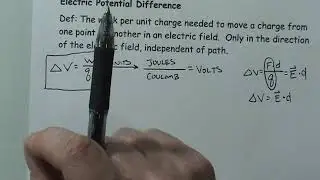 Electric Potential Difference
Def: The work per unit charge needed to move a charge from
one point to another in an electric field. Only in the direction
of the electric field, independent of path.
ΔV = W/q → JOULES/COULOMB = VOLTS
ΔV = F·d/q = E⃗·d
ΔV = E⃗·d